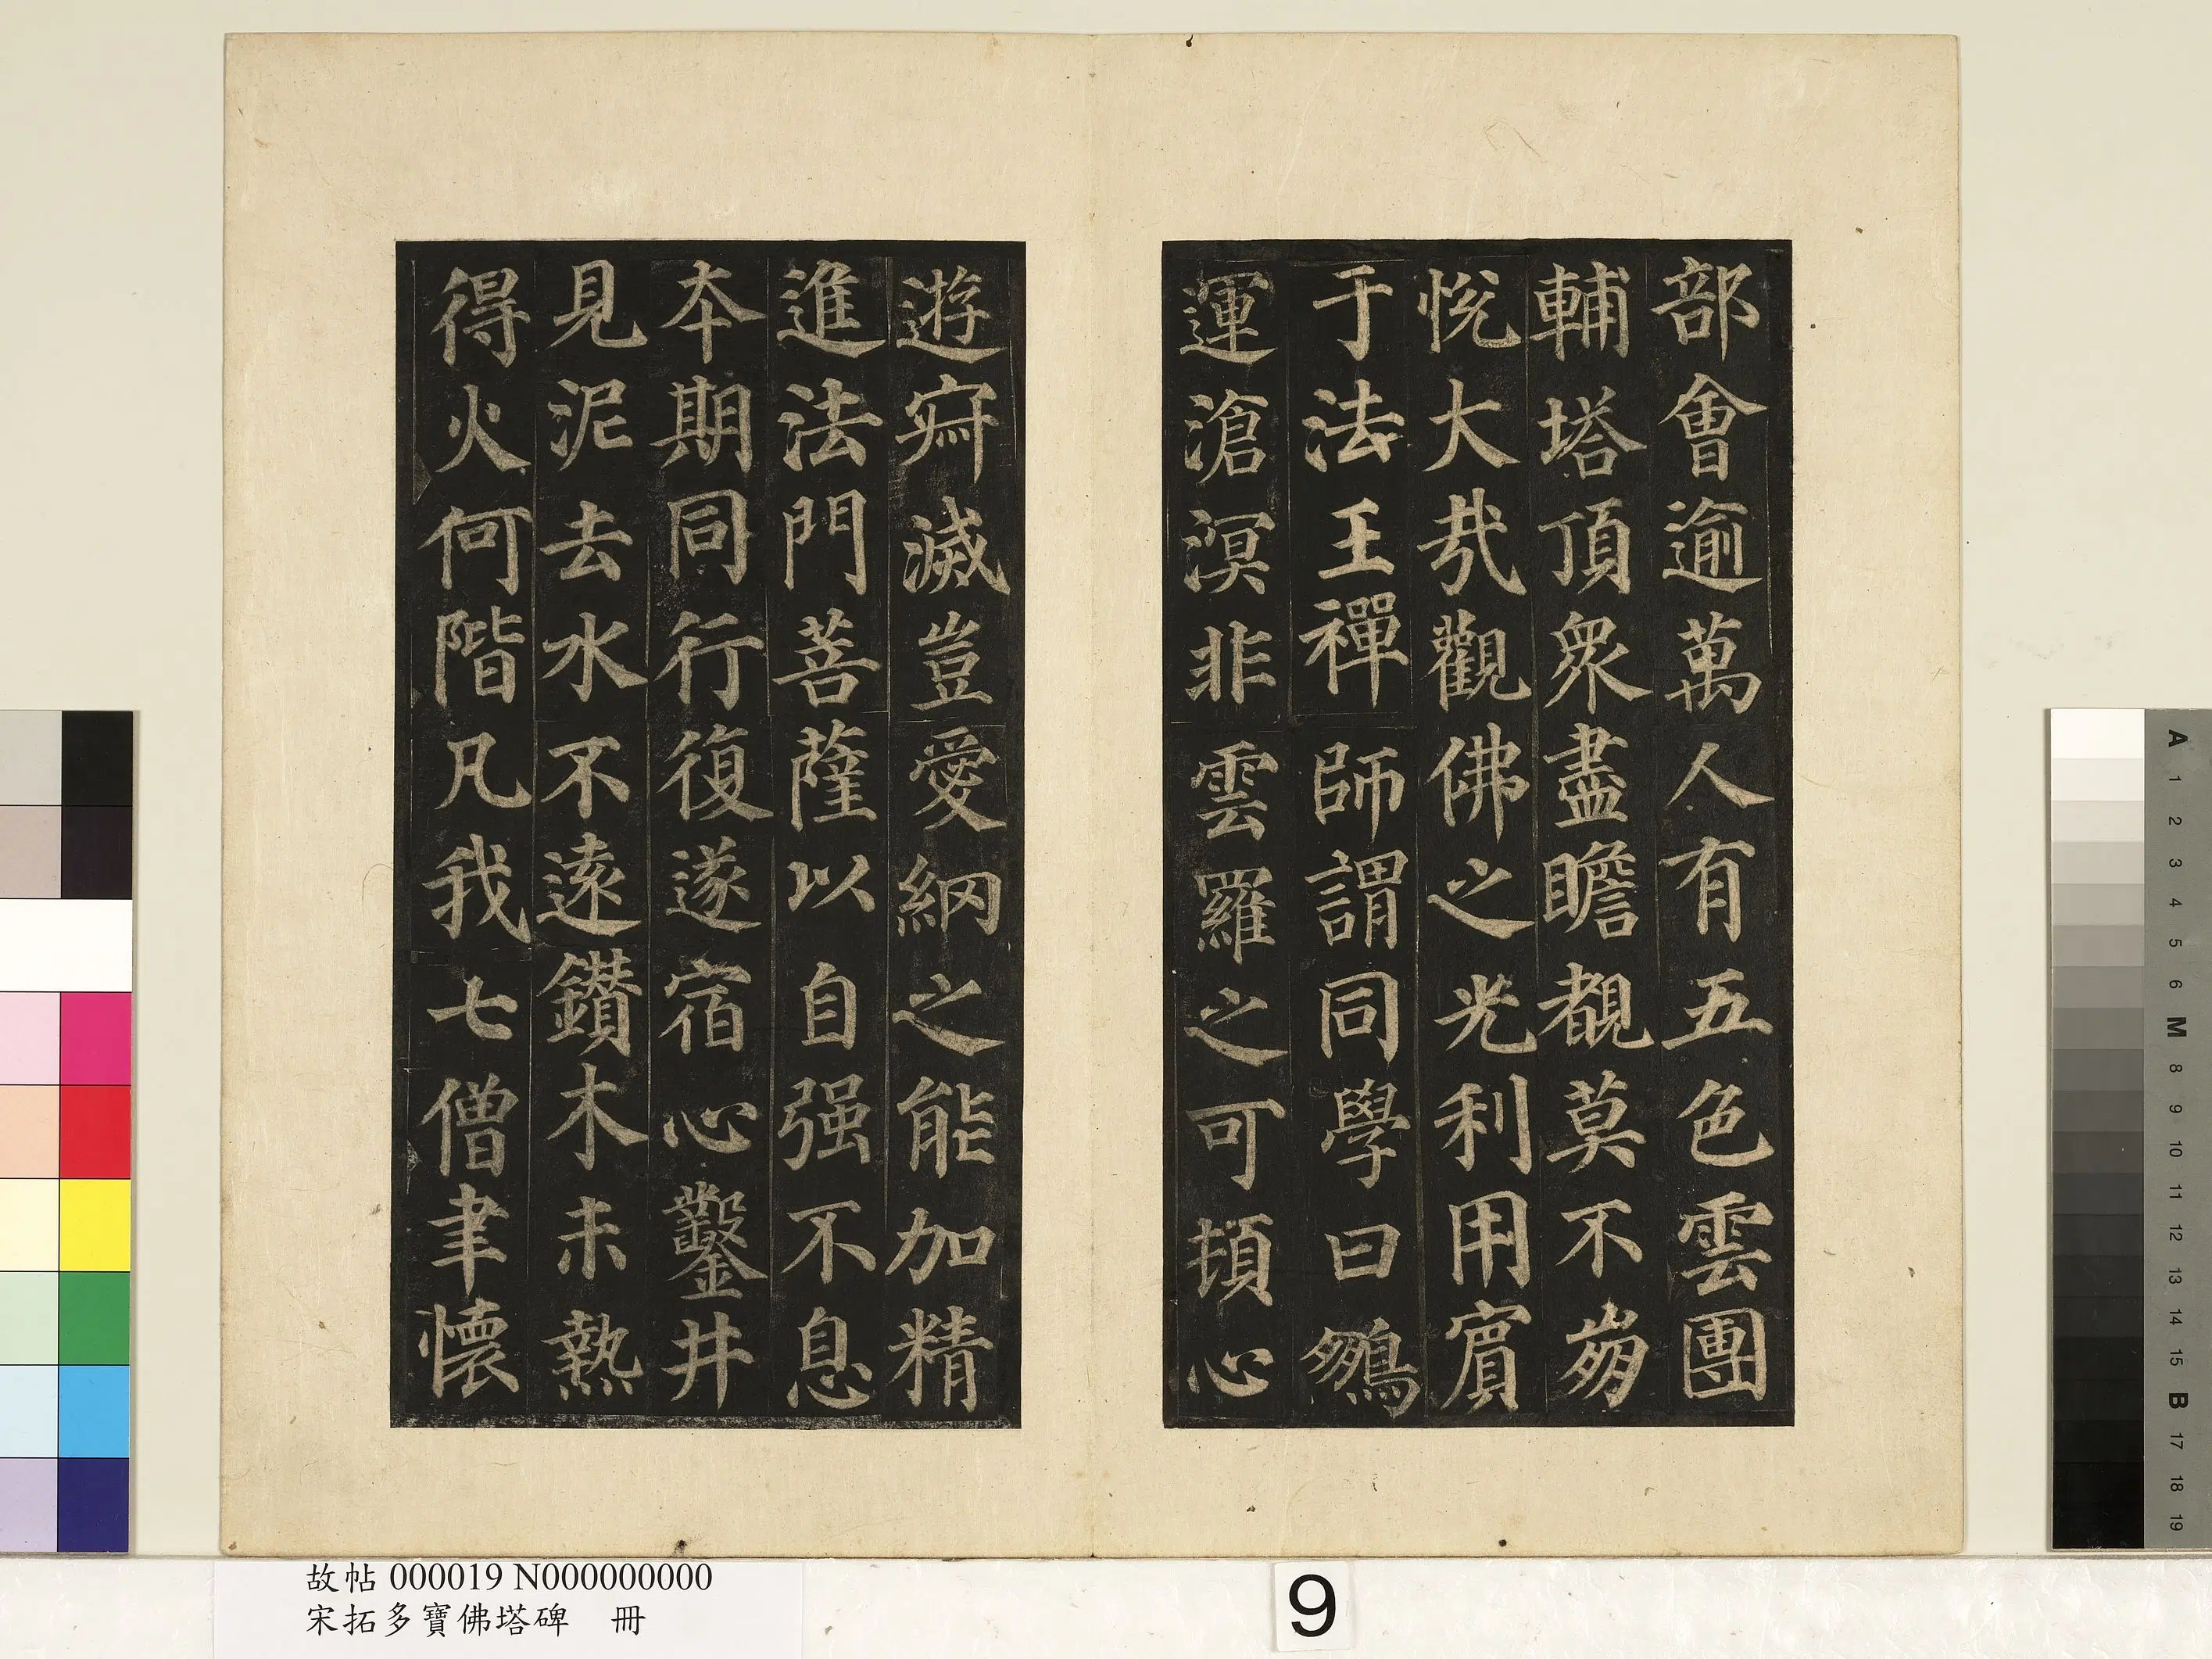 部會逾萬人有五色雲團
輔塔頂衆盡瞻覩莫不崩
悅大㢤觀佛之光利用賔
于法王禪師謂同學曰鵽
運滄溟非雲羅之可頓心
遊㝥滅豈愛網之能加精
進法門菩薩以自强不息
夲期同行復遂宿心鑿井
見泥去水不遠鑽木未熱
得火何階凡我七僧聿懷
故帖 000019 N000000000
宋拓多寶佛塔碑 冊
9
A
1
2
3
4
5
6
M
8
9
10
11
12
13
14
15
B
17
18
19